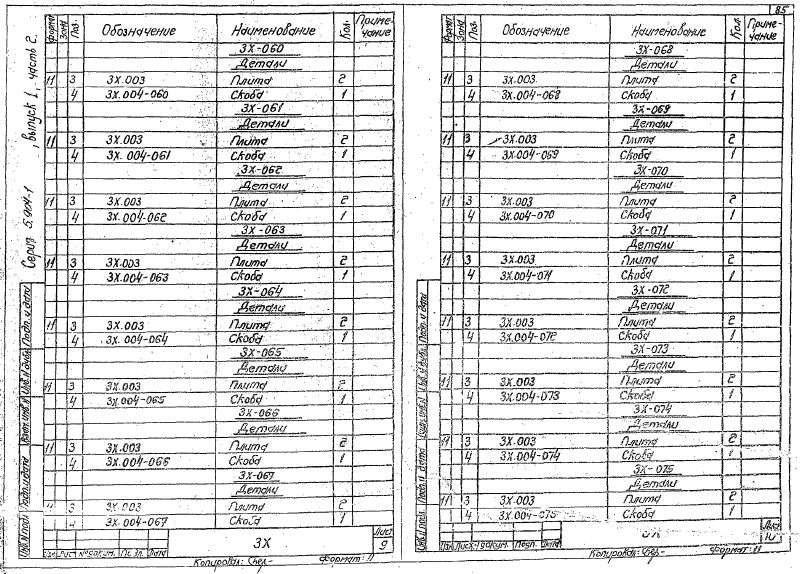 85
Серия 5.904-1, выпуск 1, часть 2.
Формат Зона Поз. Обозначение Наименование Кол. Примечание
3Х-060
Детали
11 3 3Х.003 Плита 2
4 3Х.004-060 Скоба 1
3Х-061
Детали
11 3 3Х.003 Плита 2
4 3Х.004-061 Скоба 1
3Х-062
Детали
11 3 3Х.003 Плита 2
4 3Х.004-062 Скоба 1
3Х-063
Детали
11 3 3Х.003 Плита 2
4 3Х.004-063 Скоба 1
3Х-064
Детали
11 3 3Х.003 Плита 2
4 3Х.004-064 Скоба 1
3Х-065
Детали
11 3 3Х.003 Плита 2
4 3Х.004-065 Скоба 1
3Х-066
Детали
11 3 3Х.003 Плита 2
4 3Х.004-066 Скоба 1
3Х-067
Детали
11 3 3Х.003 Плита 2
4 3Х.004-067 Скоба 1
Инв.№ подл. Подп. и дата Взам. инв.№ Инв.№ дубл. Подп. и дата
Изм. Лист № докум. Подп. Дата
3Х
Лист
9
Копировал: Формат: 11
Формат Зона Поз. Обозначение Наименование Кол. Примечание
3Х-068
Детали
11 3 3Х.003 Плита 2
4 3Х.004-068 Скоба 1
3Х-069
Детали
11 3 3Х.003 Плита 2
4 3Х.004-069 Скоба 1
3Х-070
Детали
11 3 3Х.003 Плита 2
4 3Х.004-070 Скоба 1
3Х-071
Детали
11 3 3Х.003 Плита 2
4 3Х.004-071 Скоба 1
3Х-072
Детали
11 3 3Х.003 Плита 2
4 3Х.004-072 Скоба 1
3Х-073
Детали
11 3 3Х.003 Плита 2
4 3Х.004-073 Скоба 1
3Х-074
Детали
11 3 3Х.003 Плита 2
4 3Х.004-074 Скоба 1
3Х-075
Детали
11 3 3Х.003 Плита 2
4 3Х.004-075 Скоба 1
Инв.№ подл. Подп. и дата Взам. инв.№ Инв.№ дубл. Подп. и дата
Изм. Лист № докум. Подп. Дата
3Х
Лист
10
Копировал: Формат: 11